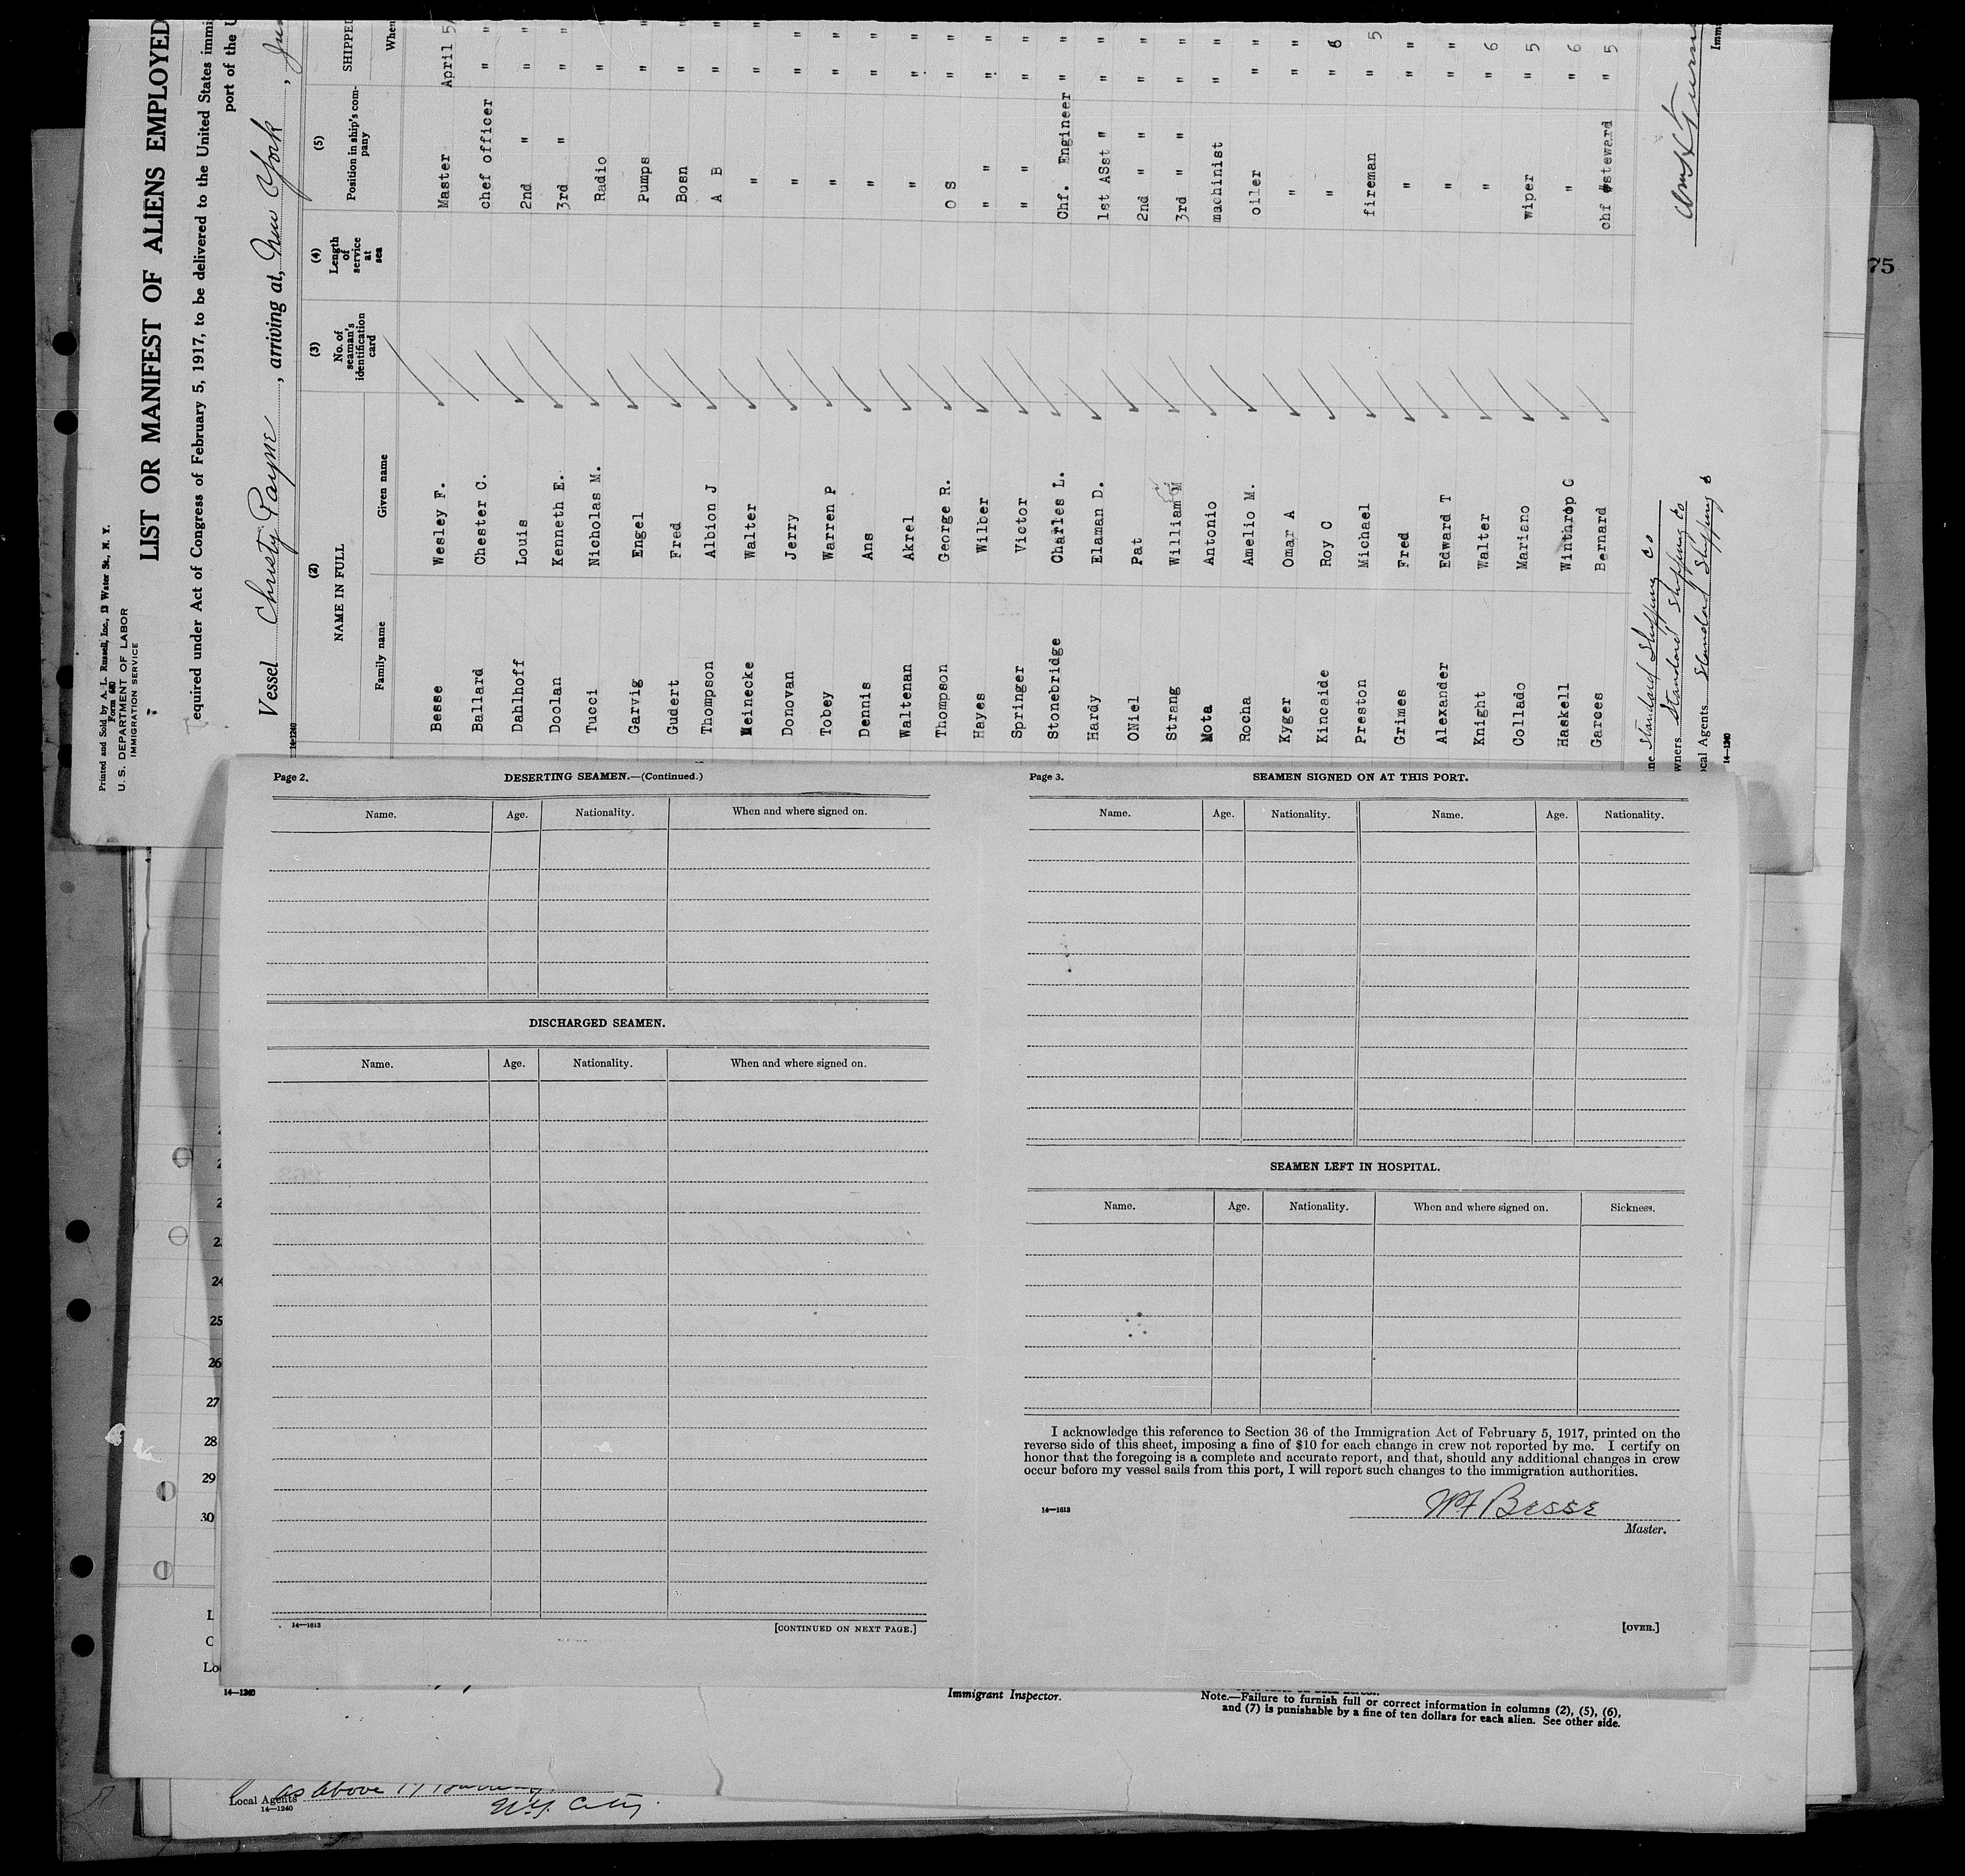 Printed and Sold by A. L. Russell, Inc., 13 Water St., N. Y.
Form 680
U. S. DEPARTMENT OF LABOR
IMMIGRATION SERVICE
LIST OR MANIFEST OF ALIENS EMPLOYED
equired under Act of Congress of February 5, 1917, to be delivered to the United States immi
port of the U
Vessel Christy Payne, arriving at, New York,
14—1240
(2) (3) (4) (5)
NAME IN FULL No. of seaman's identification card Length of service at sea Position in ship's company SHIPPED
Family name Given name When
Besse Wesley F. Master April 5
Ballard Chester C. chef officer " "
Dahlhoff Louis 2nd " " "
Doolan Kenneth E. 3rd " " "
Tucci Nicholas M. Radio " "
Garvig Engel Pumps " "
Gudert Fred Bosn " "
Thompson Albion J A B " "
Meinecke Walter " " "
Donovan Jerry " " "
Tobey Warren P " " "
Dennis Ans " " "
Waltenan Akrel " " "
Thompson George R. O S " "
Hayes Wilber " " " "
Springer Victor " " " "
Stonebridge Charles L. Chf. Engineer " "
Hardy Elaman D. 1st ASst " " "
ONiel Pat 2nd " " " "
Strang William M 3rd " " " "
Mota Antonio machinist " "
Rocha Amelio M. oiler " "
Kyger Omar A " " "
Kincaide Roy C " " 6
Preston Michael fireman " 5
Grimes Fred " " "
Alexander Edward T " " "
Knight Walter " " 6
Collado Mariano wiper " 5
Haskell Winthrop G " " 6
Garces Bernard chf steward " 5
ne Standard Shipping Co
wners Standard Shipping Co
ocal Agents Standard Shipping
14—1240
Imm
75
Page 2.
DESERTING SEAMEN.—(Continued.)
Name. Age. Nationality. When and where signed on.
DISCHARGED SEAMEN.
Name. Age. Nationality. When and where signed on.
14—1613
[CONTINUED ON NEXT PAGE.]
Page 3.
SEAMEN SIGNED ON AT THIS PORT.
Name. Age. Nationality. Name. Age. Nationality.
SEAMEN LEFT IN HOSPITAL.
Name. Age. Nationality. When and where signed on. Sickness.
I acknowledge this reference to Section 36 of the Immigration Act of February 5, 1917, printed on the
reverse side of this sheet, imposing a fine of $10 for each change in crew not reported by me. I certify on
honor that the foregoing is a complete and accurate report, and that, should any additional changes in crew
occur before my vessel sails from this port, I will report such changes to the immigration authorities.
14—1613
WF Besse
Master.
[OVER.]
24
25
26
27
28
29
30
L
C
Lo
14—1240
Immigrant Inspector.
Note.—Failure to furnish full or correct information in columns (2), (5), (6),
and (7) is punishable by a fine of ten dollars for each alien. See other side.
Local Agents as above
14—1240
N.Y. City